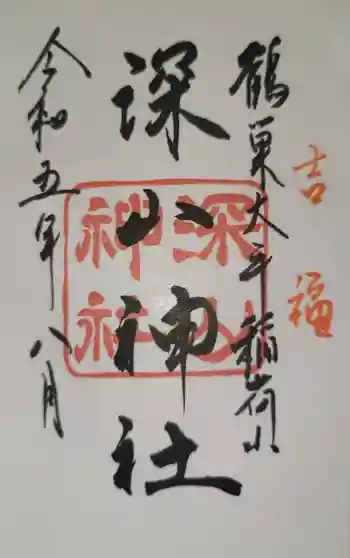 吉福
鶴巣大平稲荷山
深山神社
深山神社
令和五年八月